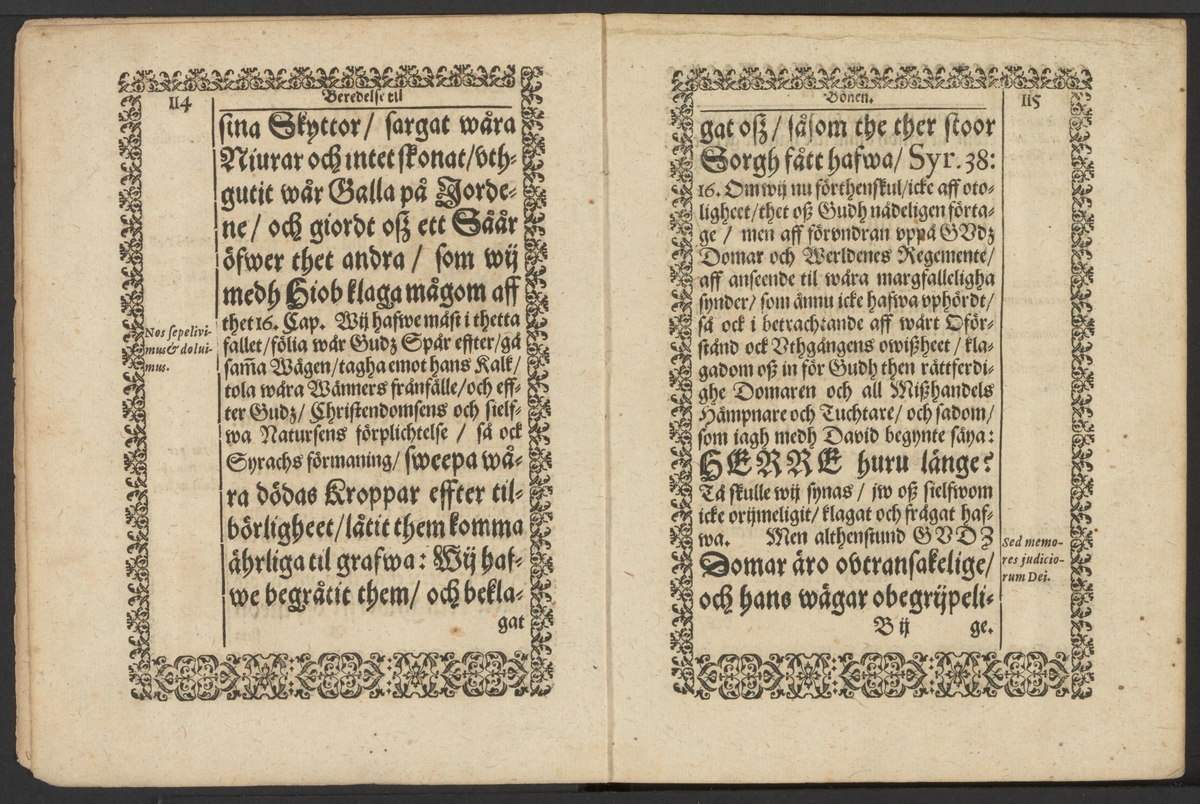 114
Beredelse til
sina Skyttor / sargat wåra
Niurar och intet skonat/vth-
gutit wår Galla på Jorde-
ne / och giordt oß ett Såår
öfwer thet andra / som wij
medh Hiob klaga mågom aff
thet 16. Cap. Wij hafwe måst i thetta
fallet/fölia wår Gudz Spår effter/gå
sam̃a Wägen/tagha emot hans Kalk/
tola wåra Wänners frånfälle/och eff-
ter Gudz/ Christendomsens och sielf-
wa Natursens förplichtelse / så ock
Syrachs förmaning/ sweepa wå-
ra dödas Kroppar effter til-
börligheet/låtit them komma
ährliga til grafwa: Wij haf-
we begråtit them/ och bekla-
gat
Nos sepelivi-
mus & dolui-
mus.
Bönen.
115
gat oß / såsom the ther stoor
Sorgh fått hafwa/ Syr. 38:
16. Om wij nu förthenskul/icke aff oto-
ligheet/thet oß Gudh nådeligen förta-
ge / men aff förvndran vppå GVdz
Domar och Werldenes Regemente/
aff anseende til wåra margfalleligha
synder/ som ännu icke hafwa vphördt/
så ock i betrachtande aff wårt Oför-
stånd ock Vthgångens owißheet / kla-
gadom oß in för Gudh then rättferdi-
ghe Domaren och all Mißhandels
Hämpnare och Tuchtare/ och sadom/
som iagh medh David begynte säya:
HERRE huru länge?
Tå skulle wij synas / jw oß sielfwom
icke orijmeligit/ klagat och frågat haf-
wa. Men althenstund GVDZ
Domar äro ovtransakelige/
och hans wägar obegrijpeli-
B ij
ge.
Sed memo-
res judicio-
rum Dei.